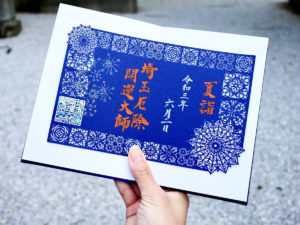 夏詣
令和三年
六月一日
埼玉厄除
開運大師